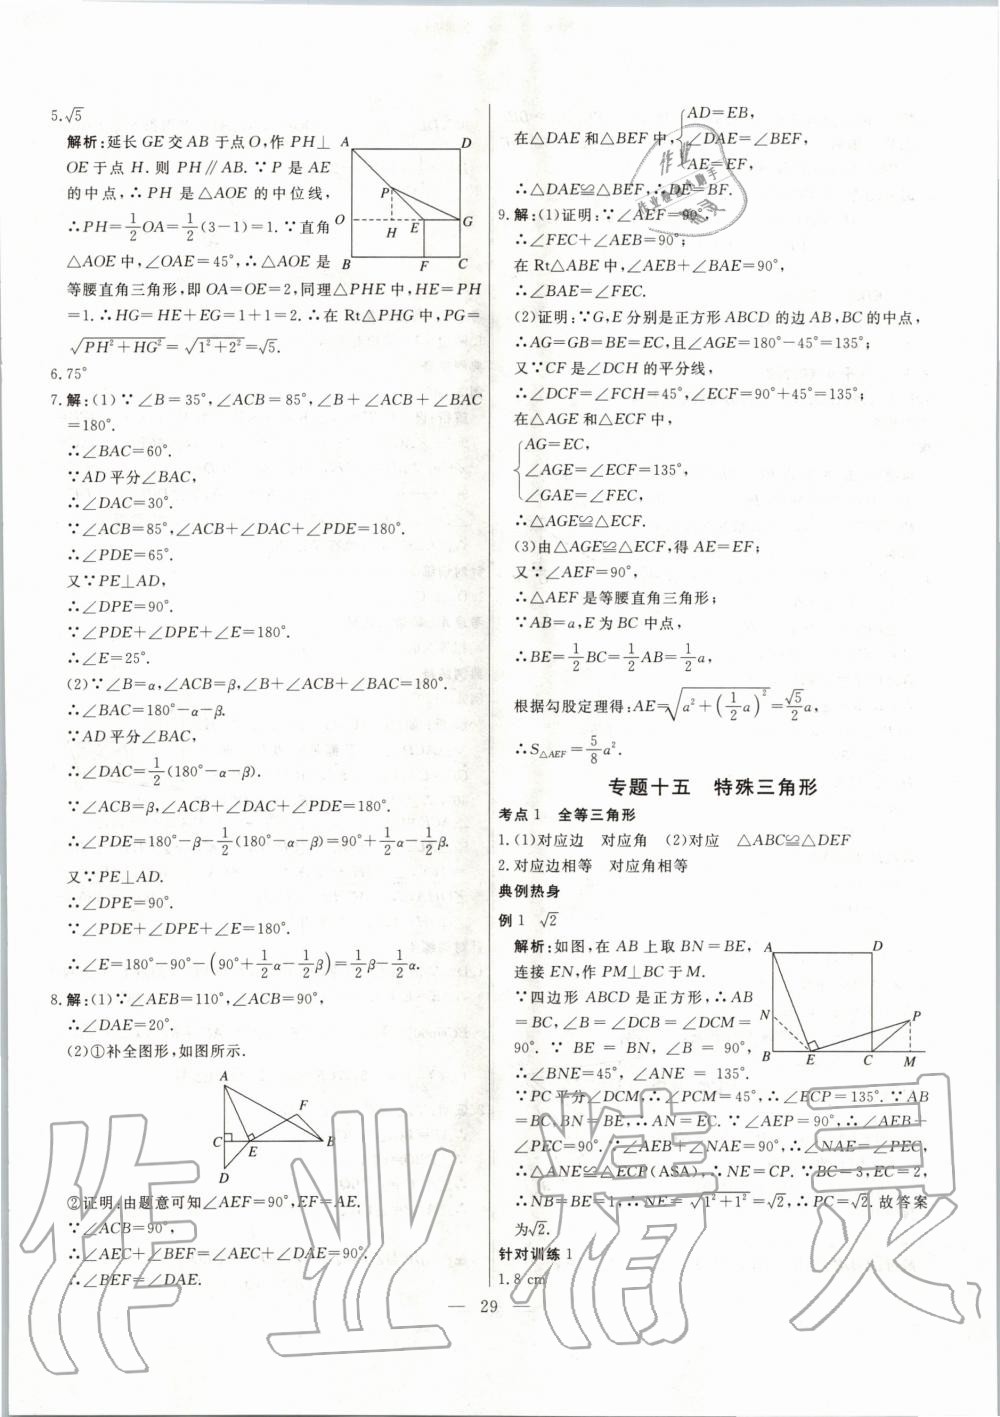 5.√5
解析:延长GE交AB于点O,作PH⊥
OE于点H.则PH∥AB.∵P是AE
的中点,∴PH是△AOE的中位线,
∴PH=1/2OA=1/2(3-1)=1.∵直角
△AOE中,∠OAE=45°,∴△AOE是
等腰直角三角形,即OA=OE=2,同理△PHE中,HE=PH
=1.∴HG=HE+EG=1+1=2.∴在Rt△PHG中,PG=
√(PH²+HG²)=√(1²+2²)=√5.
A D P O H E G B F C
6.75°
7.解:(1)∵∠B=35°,∠ACB=85°,∠B+∠ACB+∠BAC
=180°.
∴∠BAC=60°.
∵AD平分∠BAC,
∴∠DAC=30°.
∵∠ACB=85°,∠ACB+∠DAC+∠PDE=180°.
∴∠PDE=65°.
又∵PE⊥AD,
∴∠DPE=90°.
∵∠PDE+∠DPE+∠E=180°.
∴∠E=25°.
(2)∵∠B=α,∠ACB=β,∠B+∠ACB+∠BAC=180°.
∴∠BAC=180°-α-β.
∵AD平分∠BAC,
∴∠DAC=1/2(180°-α-β).
∵∠ACB=β,∠ACB+∠DAC+∠PDE=180°.
∴∠PDE=180°-β-1/2(180°-α-β)=90°+1/2α-1/2β.
又∵PE⊥AD.
∴∠DPE=90°.
∵∠PDE+∠DPE+∠E=180°.
∴∠E=180°-90°-(90°+1/2α-1/2β)=1/2β-1/2α.
8.解:(1)∵∠AEB=110°,∠ACB=90°,
∴∠DAE=20°.
(2)①补全图形,如图所示.
A F C E B D
②证明:由题意可知∠AEF=90°,EF=AE.
∵∠ACB=90°,
∴∠AEC+∠BEF=∠AEC+∠DAE=90°.
∴∠BEF=∠DAE.
在△DAE和△BEF中,{AD=EB,
∠DAE=∠BEF,
AE=EF,
∴△DAE≌△BEF,∴DE=BF.
9.解:(1)证明:∵∠AEF=90°.
∴∠FEC+∠AEB=90°;
在Rt△ABE中,∠AEB+∠BAE=90°,
∴∠BAE=∠FEC.
(2)证明:∵G,E分别是正方形ABCD的边AB,BC的中点,
∴AG=GB=BE=EC,且∠AGE=180°-45°=135°;
又∵CF是∠DCH的平分线,
∴∠DCF=∠FCH=45°,∠ECF=90°+45°=135°;
在△AGE和△ECF中,
{AG=EC,
∠AGE=∠ECF=135°,
∠GAE=∠FEC,
∴△AGE≌△ECF.
(3)由△AGE≌△ECF,得AE=EF;
又∵∠AEF=90°,
∴△AEF是等腰直角三角形;
∵AB=a,E为BC中点,
∴BE=1/2BC=1/2AB=1/2a,
根据勾股定理得:AE=√(a²+(1/2a)²)=√5/2a,
∴S△AEF=5/8a².
专题十五 特殊三角形
考点1 全等三角形
1.(1)对应边 对应角 (2)对应 △ABC≌△DEF
2.对应边相等 对应角相等
典例热身
例1 √2
解析:如图,在AB上取BN=BE,
连接EN,作PM⊥BC于M.
∵四边形ABCD是正方形,∴AB
=BC,∠B=∠DCB=∠DCM=
90°.∵BE=BN,∠B=90°,
∴∠BNE=45°,∠ANE=135°.
A D N P B E C M
∵PC平分∠DCM,∴∠PCM=45°,∴∠ECP=135°.∵AB
=BC,BN=BE,∴AN=EC.∵∠AEP=90°,∴∠AEB+
∠PEC=90°.∵∠AEB+∠NAE=90°,∴∠NAE=∠PEC,
∴△ANE≌△ECP(ASA),∴NE=CP.∵BC=3,EC=2,
∴NB=BE=1,∴NE=√(1²+1²)=√2,∴PC=√2.故答案
为√2.
针对训练1
1.8 cm
— 29 —
作业精灵